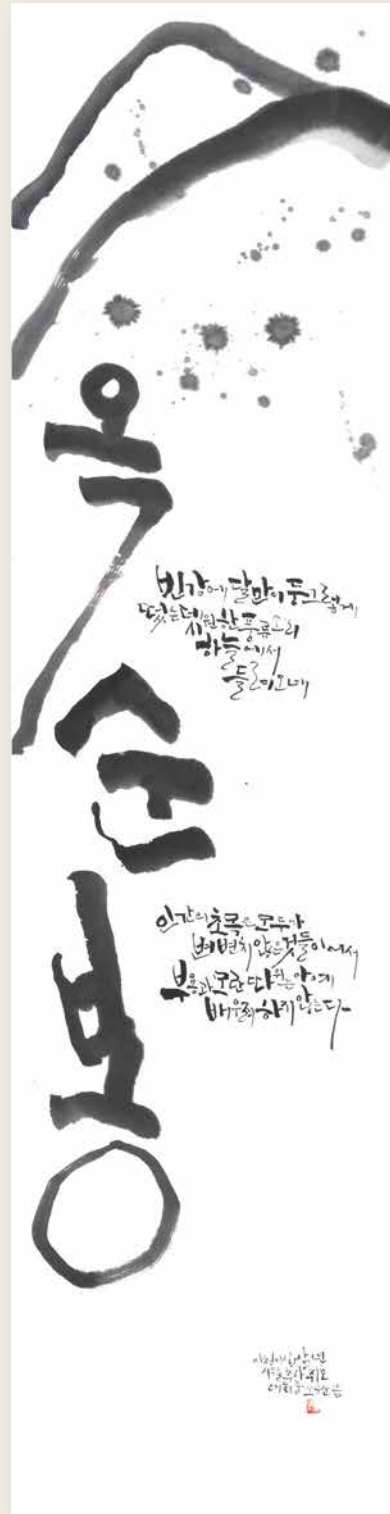 옥순봉
빈 강에 달만이 둥그렇게
떴는데 시원한 풍류소리
하늘에서
들려오네
인간의 초목은 모두가
뻔뻔치 않은 것들이어서
부용과 모란 따위는 아예
배우려 하지 않는다